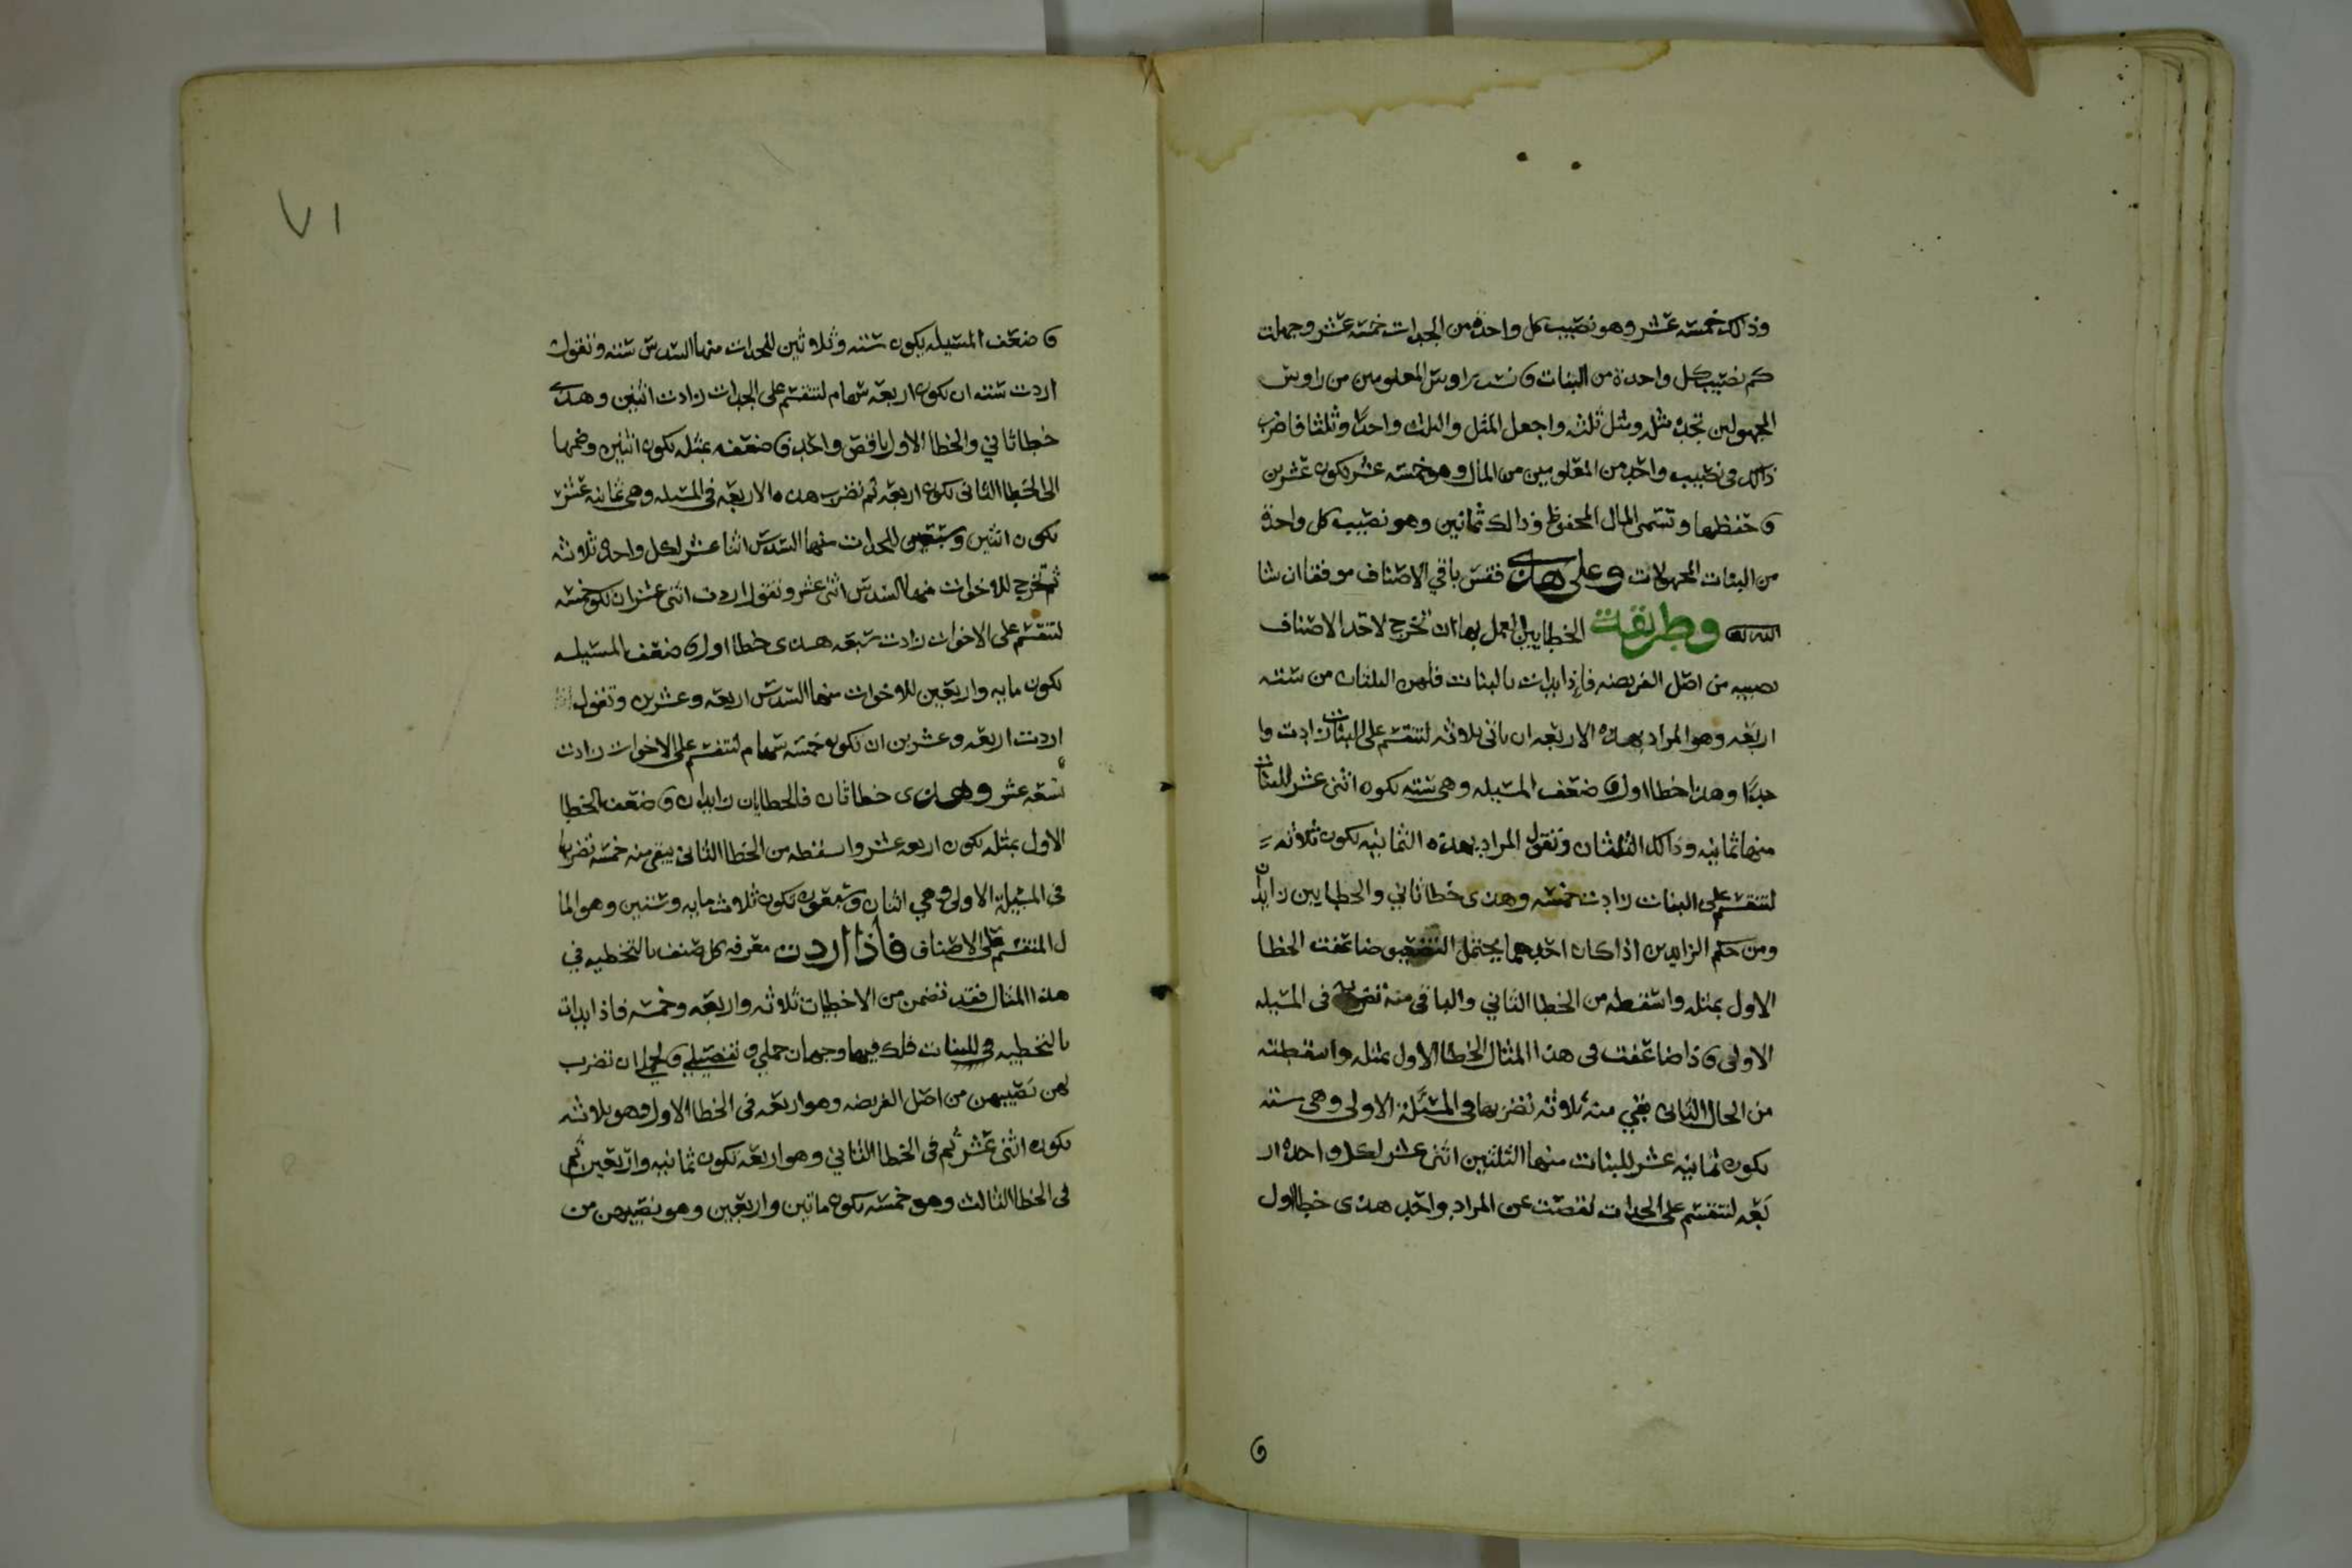 وذالك خمسة عشر وهو نصيب كل واحدة من الجدات خمسة عشر وجهلت
كم نصيب كل واحدة من البنات فانسب راوس المعلومين من راوس
المجهولين تجده مثله ومثل ثلثه واجعل المثل والثلث واحدًا وثلثا فاضرب
ذالك في نصيب واحد من المعلومين من المال وهو خمسة عشر يكون عشرين
فاحفظها وتسمى المال المحفوظ وذالك ثمانين وهو نصيب كل واحدة
من البنات المجهولات وعلى هذى فقس باقي الاصناف موفقا ان شا
الله تعالى وطريقة الخطايين العمل بها ان تخرج لاحد الاصناف
نصيبه من اصل الفريضه فاذا بدات بالبنات فلهن الثلثان من سته
اربعه وهو المراد بهذه الاربعه ان ياتي ثلاثه لتنقسم على البنات زادت وا
حدًا وهذا خطا اول فاضعف المسيله وهي سته يكون اثنى عشر للبنات
منها ثمانيه وذالك الثلثان وتقول المراد بهذه الثمانيه يكون ثلاثه
لتنقسم على البنات زادت خمسه وهذى خطا ثاني والخطايين زايدان
ومن حكم الزايدين اذا كان احدهما يحتمل التضعيف ضاعفت الخطا
الاول بمثله واسقطه من الخطا الثاني والباقي منه تضربه في المسيله
الاولى فاذا ضاعفت في هذا المثال الخطا الاول بمثله واسقطته
من الحال الثاني بقي منه ثلاثه تضربها في المسئلة الاولى وهي سته
يكون ثمانيه عشر للبنات منها الثلثين اثنى عشر لكل واحده ار
بعه لتنقسم على الجدات نقصت عن المراد واحد هذى خطا اول
٧١
فاضعف المسيله يكون سته وثلاثين للجدات منها السدس سته وتقول
اردت سته ان يكون اربعه سهام لتنقسم على الجدات زادت اثنين وهذى
خطا ثاني والخطا الاول ناقص واحد فاضعفه بمثله يكون اثنين وضمها
الى الخطا الثاني يكون اربعه ثم تضرب هذه الاربعه في المسيله وهي ثمانيه عشر
يكون اثنين وسبعين للجدات منها السدس اثنا عشر لكل واحده ثلاثه
ثم تخرج للاخوات منها السدس اثنى عشر وتقول اردت اثنى عشر ان يكون خمسه
لتنقسم على الاخوات زادت سبعه هذى خطا اول فاضعف المسيله
يكون مايه واربعين للاخوات منها السدس اربعه وعشرين وتقول
اردت اربعه وعشرين ان يكون خمسه سهام لتنقسم على الاخوات زادت
تسعه عشر وهذى خطا ثان فالخطايان زايدان فاضعف الخطا
الاول بمثله يكون اربعه عشر واسقطه من الخطا الثاني يبقى منه خمسه تضربها
في المسيلة الاولى وهي اثنان وسبعون يكون ثلاث مايه وستين وهو الما
ل المنقسم على الاصناف فاذا اردت معرفه كل صنف بالتخطيه في
هذا المثال فقد تضمن من الاخطيات ثلاثه واربعه وخمسه فاذا بدات
بالتخطيه في للبنات فلك فيها وجهان جملي وتفصيلي فالجملي ان تضرب
لهن نصيبهن من اصل الفريضه وهو اربعه في الخطا الاول وهو ثلاثه
يكون اثنى عشر ثم في الخطا الثاني وهو اربعه يكون ثمانيه واربعين ثم
في الخطا الثالث وهو خمسه يكون ماتين واربعين وهو نصيبهن من